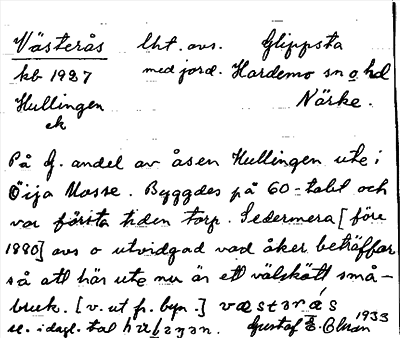 Västerås lht. avs. Glippsta
kb 1927 med jord. Hardemo sn o hd
Hullingen Närke.
ek
På G. andel av åsen Hullingen ute i
Öija Mosse. Byggdes på 60-talet och
var första tiden torp. Sedermera [före
1880] avs o utvidgad vad åker beträffar
så att här ute nu är ett välskött små-
bruk. [v. ut fr. byn.] væstərås
se. i dagl. tal
Gustaf E. Olsson 1933